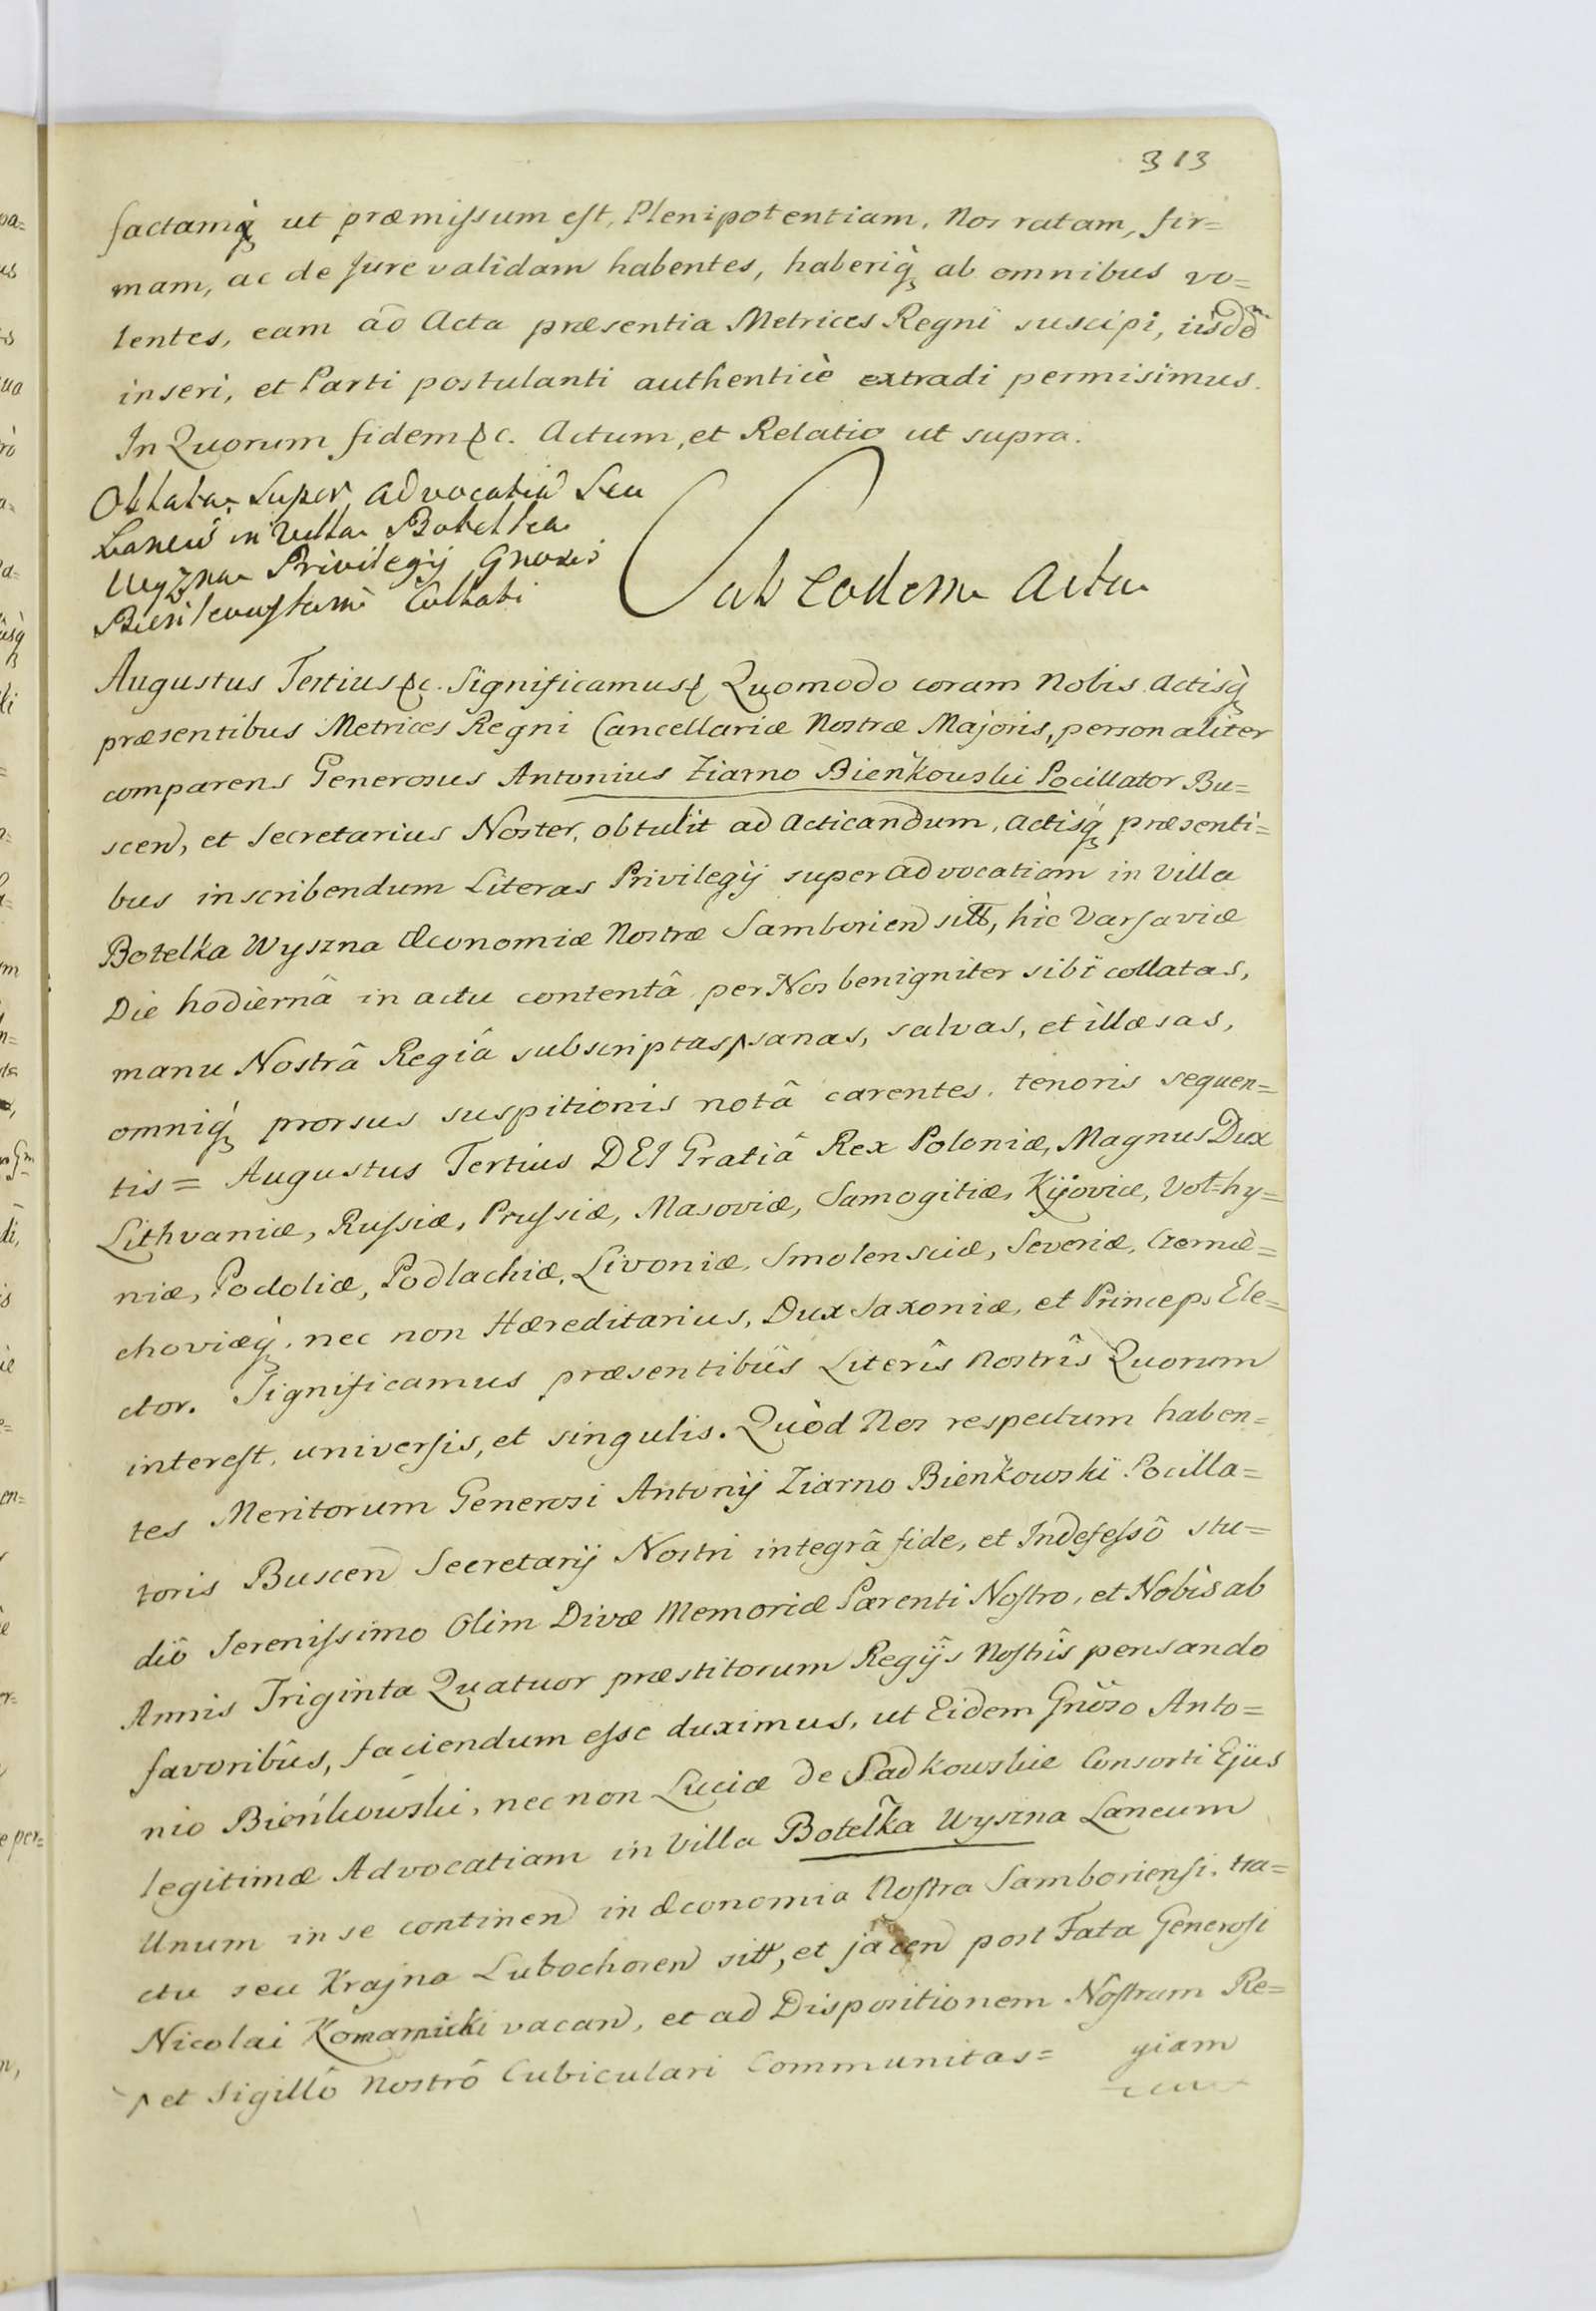 313
factamq́ꝫ ut præmissum est, Plenipotentiam, Nos ratam, fir=
mam, ac de Jure validam habentes, haberiq́ꝫ ab omnibus vo=
lentes, eam ad Acta præsentia Metrices Regni suscipi, iisdem
inseri, et Parti postulanti authenticè extradi permisimus.
In Quorum fidem &c. Actum, et Relatio ut supra.
Oblata Super advocatiâ Seu
Laneis in Villa Botelka
Wyzna Privilegij Gnoso
Bienkowskiemu Collati
Sub eodem Actu
Augustus Tertius &c. Significamus& Quomodo coram Nobis Actisq́ꝫ
præsentibus Metrices Regni Cancellariæ Nostræ Majoris, personaliter
comparens Generosus Antonius Ziarno Bieńkowski Pocillator Bu=
scen, et Secretarius Noster, obtulit ad Acticandum, Actisq́ꝫ præsenti=
bus inscribendum Literas Privilegij super Advocatiam in Villa
Botelka Wyszna Œconomiæ Nostræ Samborien sitt, hic Varsaviæ
Die hodiernâ in actu contentâ per Nos benigniter sibi collatas,
manu Nostrâ Regiâ subscriptas, sanas, salvas, et illæsas,
omniq́ꝫ prorsus suspitionis notâ carentes, tenoris sequen=
tis = Augustus Tertius DEI Gratiâ Rex Poloniæ, Magnus Dux
Lithvaniæ, Russiæ, Prussiæ, Masoviæ, Samogitiæ, Kijoviæ, Vol=hy=
niæ, Podoliæ, Podlachiæ, Livoniæ, Smolensciæ, Severiæ, Czernie=
choviæq́ꝫ, nec non Hæreditarius, Dux Saxoniæ, et Princeps Ele=
ctor. Significamus præsentibus Literîs Nostrîs Quorum
interest, universis, et singulis. Quòd Nos respectum haben=
tes Meritorum Generosi Antonij Ziarno Bieńkowski Pocilla=
toris Buscen Secretarij Nostri integrâ fide, et Indefessô stu=
diô Serenissimo Olim Divæ Memoriæ Parenti Nostro, et Nobis ab
Annis Triginta Quatuor præstitorum Regijs Nostrîs pensando
favoribûs, faciendum esse duximus, ut Eidem Gnôso Anto=
nio Bieńkowski, nec non Luciæ de Sadkowskie Consorti Ejus
legitimæ Advocatiam in Villa Botelka Wyszna Laneum
Unum in se continen in Œconomia Nostra Samboriensi, tra=
ctu seu Krajna Lubochoren sitt, et jacen post Fata Generosi
Nicolai Komarnicki vacan, et ad Dispositionem Nostram Re=
giam
et Sigillô Nostrô Cubiculari Communitas=